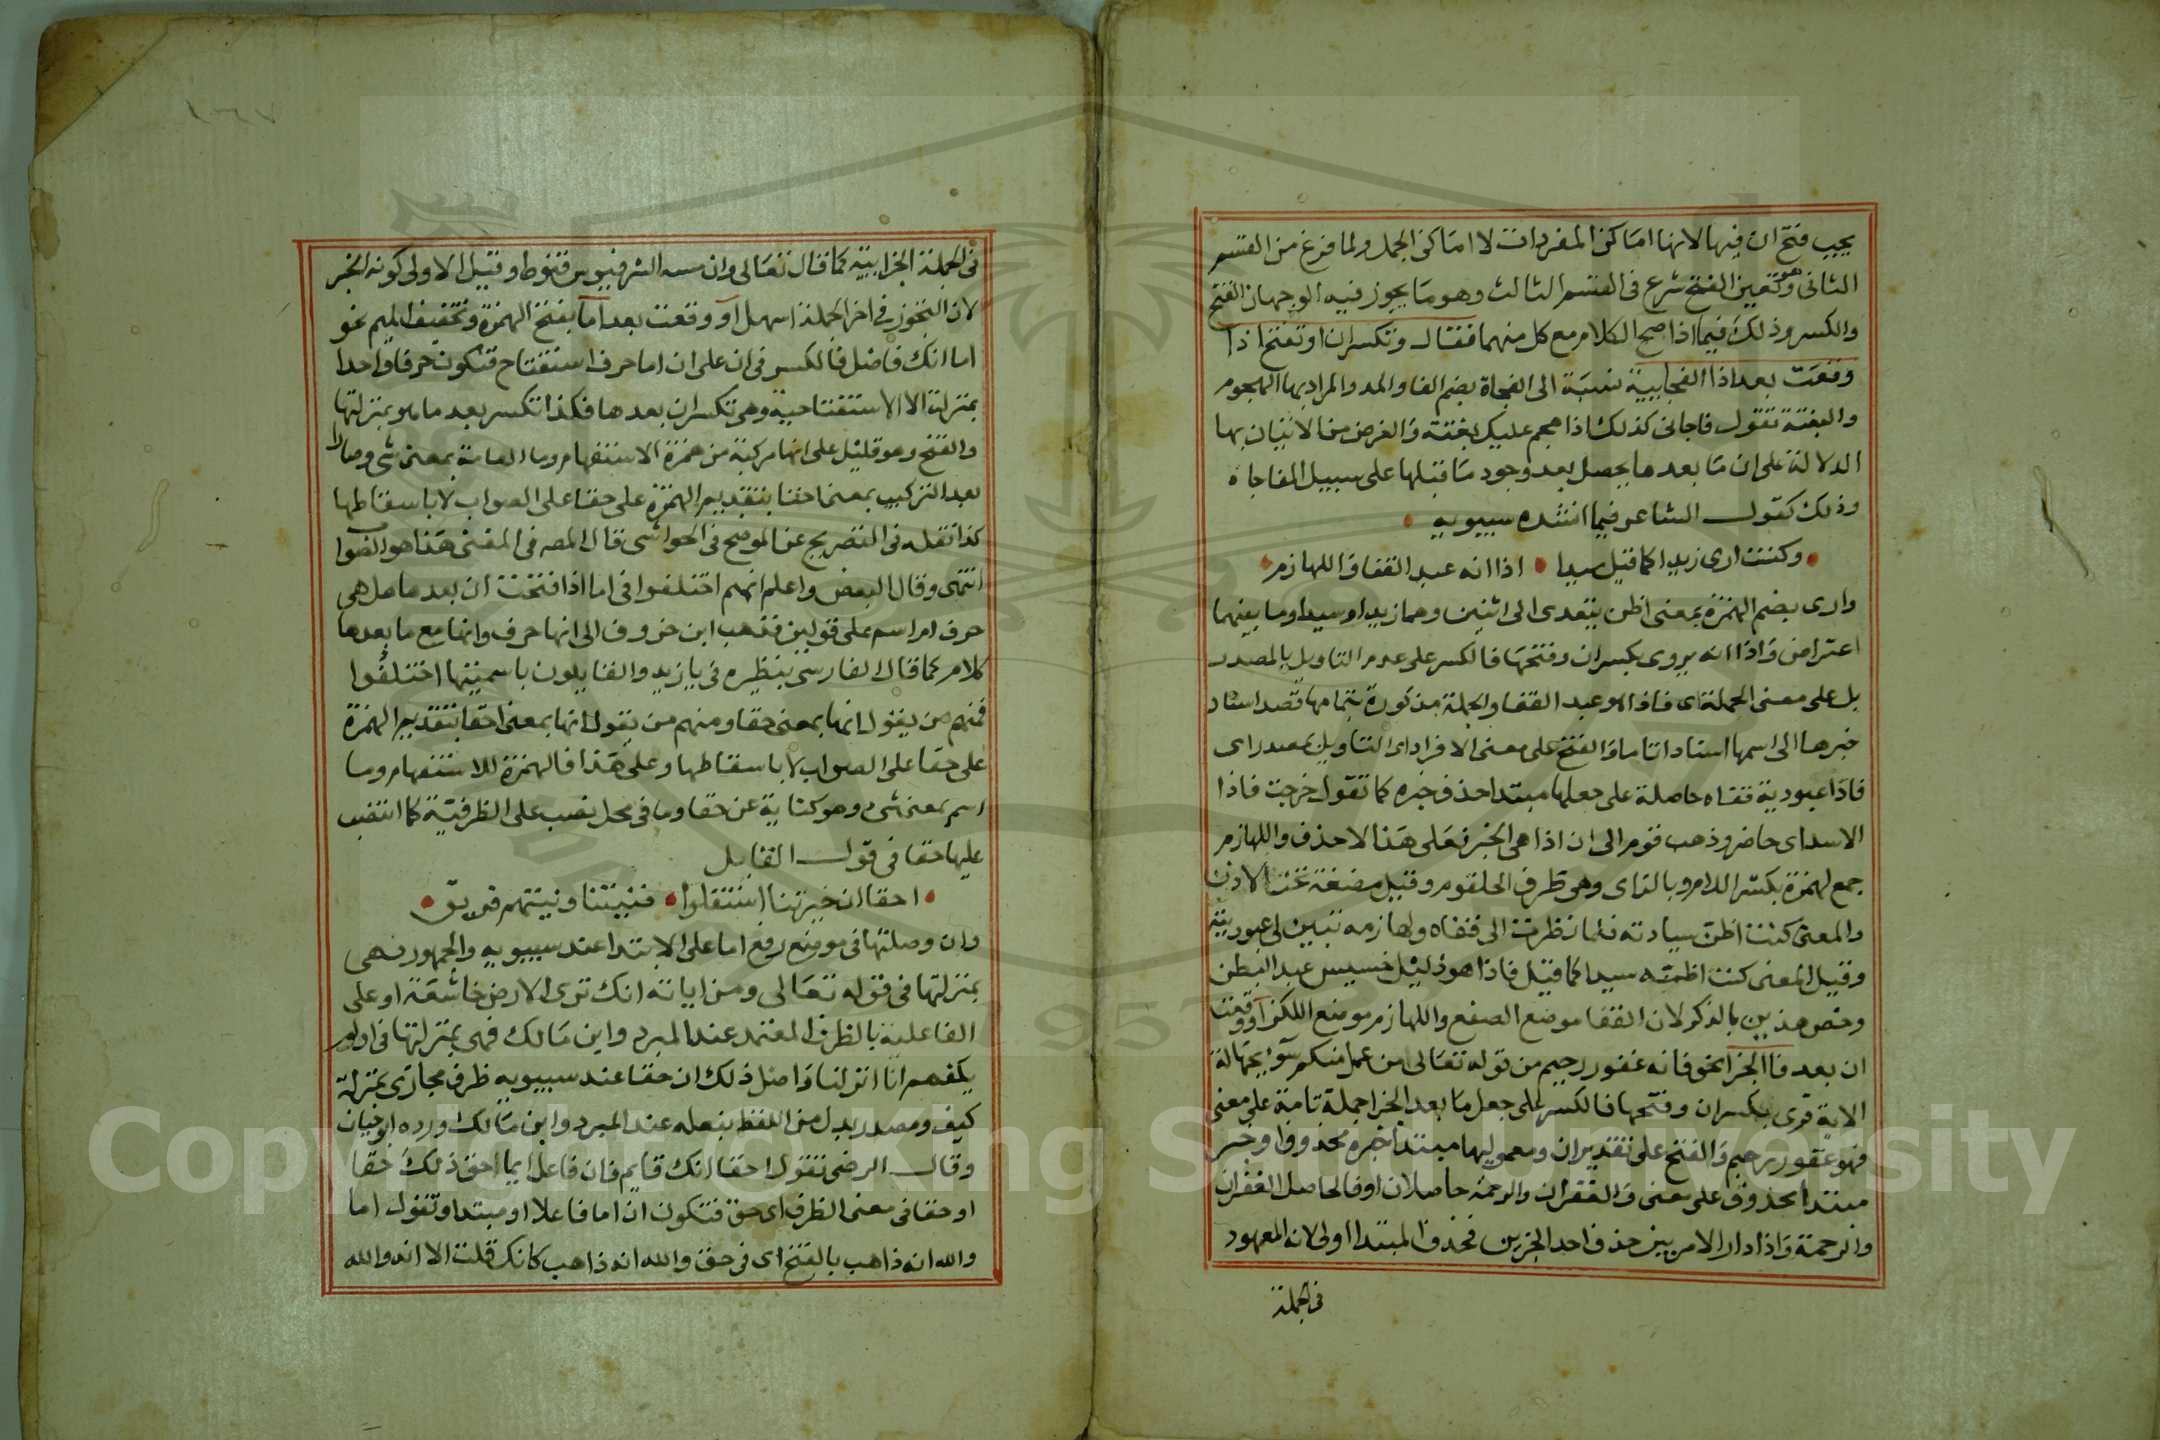 يجب فتح ان فيها لانها اماكن المفردات لا اماكن الجمل ولما فرغ من القسم
الثانى وهو تعين الفتح شرع فى القسم الثالث وهو ما يجوز فيه الوجهان الفتح
والكسر وذلك فيما اذا صح الكلام مع كل منهما فقال وتكسر ان او تفتح اذا
وقعت بعد اذا الفجايية نسبة الى الفجاة بضم الفا والمد والمراد بها الهجوم
والبغتة تقول فاجانى كذلك اذا هجم عليك بغتة والغرض من الاتيان بها
الدلالة على ان ما بعدها يحصل بعد وجود ما قبلها على سبيل المفاجاه
وذلك كقول الشاعر فيما انشده سيبويه
وكنت ارى زيدا كما قيل سيدا اذا انه عبد القفا واللهازم
وارى بضم الهمزة بمعنى اظن يتعدى الى اثنين وهما زيدا وسيدا وما بينهما
اعتراض واذا انه يروى بكسر ان وفتحها فالكسر على عدم التاويل بالمصدر
بل على معنى الجملة اى فاذا هو عبد القفا والجملة مذكورة بتمامها قصد اسناد
خبرها الى اسمها اسنادا تاما والفتح على معنى الافراد اى التاويل بمصدر اى
فاذا عبودية قفاه حاصلة على جعلها مبتدا حذف خبره كما تقول خرجت فاذا
الاسد اى حاضر وذهب قوم الى ان اذا هى الخبر فعلى هذا لا حذف واللهازم
جمع لهمزة بكسر اللام وبالزاى وهى طرف الحلقوم وقيل مضغة تحت الاذن
والمعنى كنت اظن سيادته فلما نظرت الى قفاه ولهازمه تبين لى عبوديته
وقيل المعنى كنت اظنه سيدا كما قيل فاذا هو ذليل خسيس عبد البطن
وخص هذين بالذكر لان القفا موضع الصفع واللهازم موضع اللكز او وقعت
ان بعد فا الجزا نحو فانه غفور رحيم من قوله تعالى من عمل منكم سوءا بجهالة
الاية قرى بكسر ان وفتحها فالكسر على جعل ما بعد الجزا جملة تامة على معنى
فهو غفور رحيم والفتح على تقدير ان ومعموليها مبتدا خبره محذوف او خبر
مبتدا محذوف على معنى فالغفران والرحمة حاصلان او فالحاصل الغفران
والرحمة واذا دار الامر بين حذف احد الجزين فحذف المبتدا اولى لانه المعهود
فى الجملة
فى الجملة الجزايية كما قال تعالى وان مسه الشر فيوس قنوط وقيل الاولى كونه الخبر
لان التجوز فى اخر الجملة اسهل او وقعت بعد اما بفتح الهمزة وتخفيف الميم نحو
اما انك فاضل فالكسر فى ان على ان اما حرف استفتاح فتكون حرفا واحدا
بمنزلة الا الاستفتاحية وهى تكسر ان بعدها فكذا تكسر بعد ما هو بمنزلتها
والفتح وهو قليل على انها مركبة من همزة الاستفهام وما العامة بمعنى شى وصارا
بعد التركيب بمعنى احقا بتقديم الهمزة على حقا على الصواب لا باسقاطها
كذا نقله فى التصريح عن الموضح فى الحواشى قال المصه فى المغنى هذا هو الصواب
انتهى وقال البعض واعلم انهم اختلفوا فى اما اذا فتحت ان بعدها هل هى
حرف ام اسم على قولين فذهب ابن خروف الى انها حرف وانها مع ما بعدها
كلام كما قال الفارسى بنظيره فى يا زيد والقايلون باسميتها اختلفوا
فمنهم من يقول انها بمعنى حقا ومنهم من يقول انها بمعنى احقا بتقديم الهمزة
على حقا على الصواب لا باسقاطها وعلى هذا فالهمزة للاستفهام وما
اسم بمعنى شى وهو كناية عن حقا وما فى محل نصب على الظرفية كما انتصب
عليها حقا فى قول القايل
احقا ان جيرتنا استقلوا فنيتنا ونيتهم فريق
وان وصلتها فى موضع رفع اما على الابتدا عند سيبويه والجمهور فهى
بمنزلتها فى قوله تعالى ومن اياته انك ترى الارض خاشعة او على
الفاعلية بالظرف المعتمد عند المبرد وابن مالك فهى بمنزلتها فى اولم
يكفهم انا انزلنا واصل ذلك ان حقا عند سيبويه ظرف مجازى بمنزلة
كيف ومصدر بدل من اللفظ بفعله عند المبرد وابن مالك ورده ابو حيان
وقال الرضى تقول احقا انك قايم فان فاعل ايما احق ذلك حقا
او حقا فى معنى الظرف اى حق فتكون ان اما فاعلا او مبتدا وتقول اما
والله انه ذاهب بالفتح اى فى حق والله انه ذاهب كانك قلت الا انه والله
Copyright © King Saud University